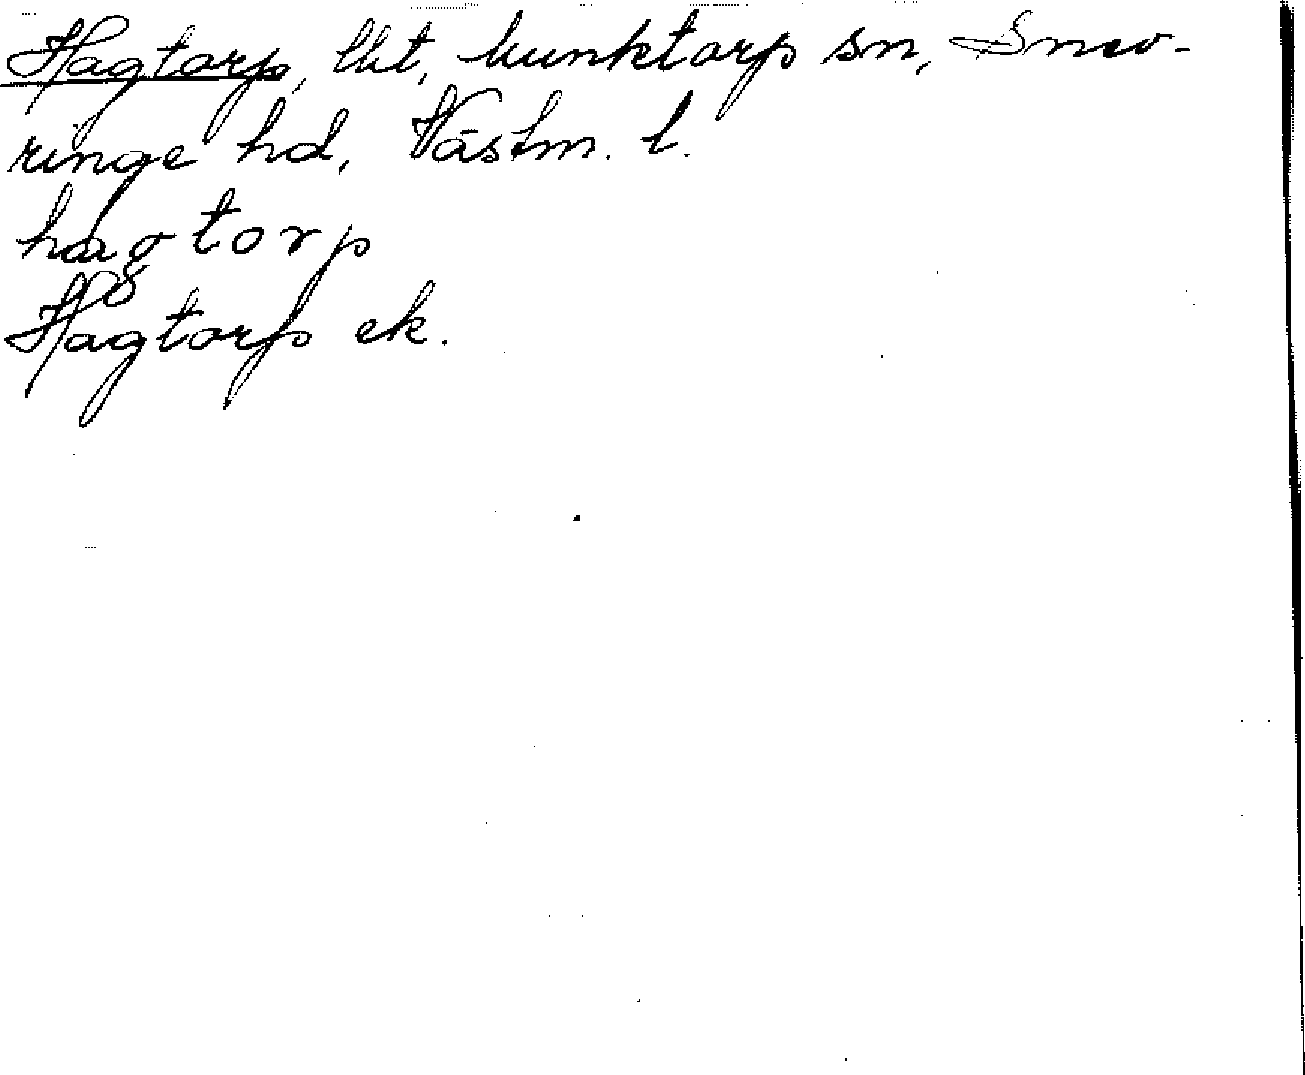 Hagtorp, lht, Munktorp sn, Snev-
ringe hd, Västm. l.
hagtorp
Hagtorp ek.